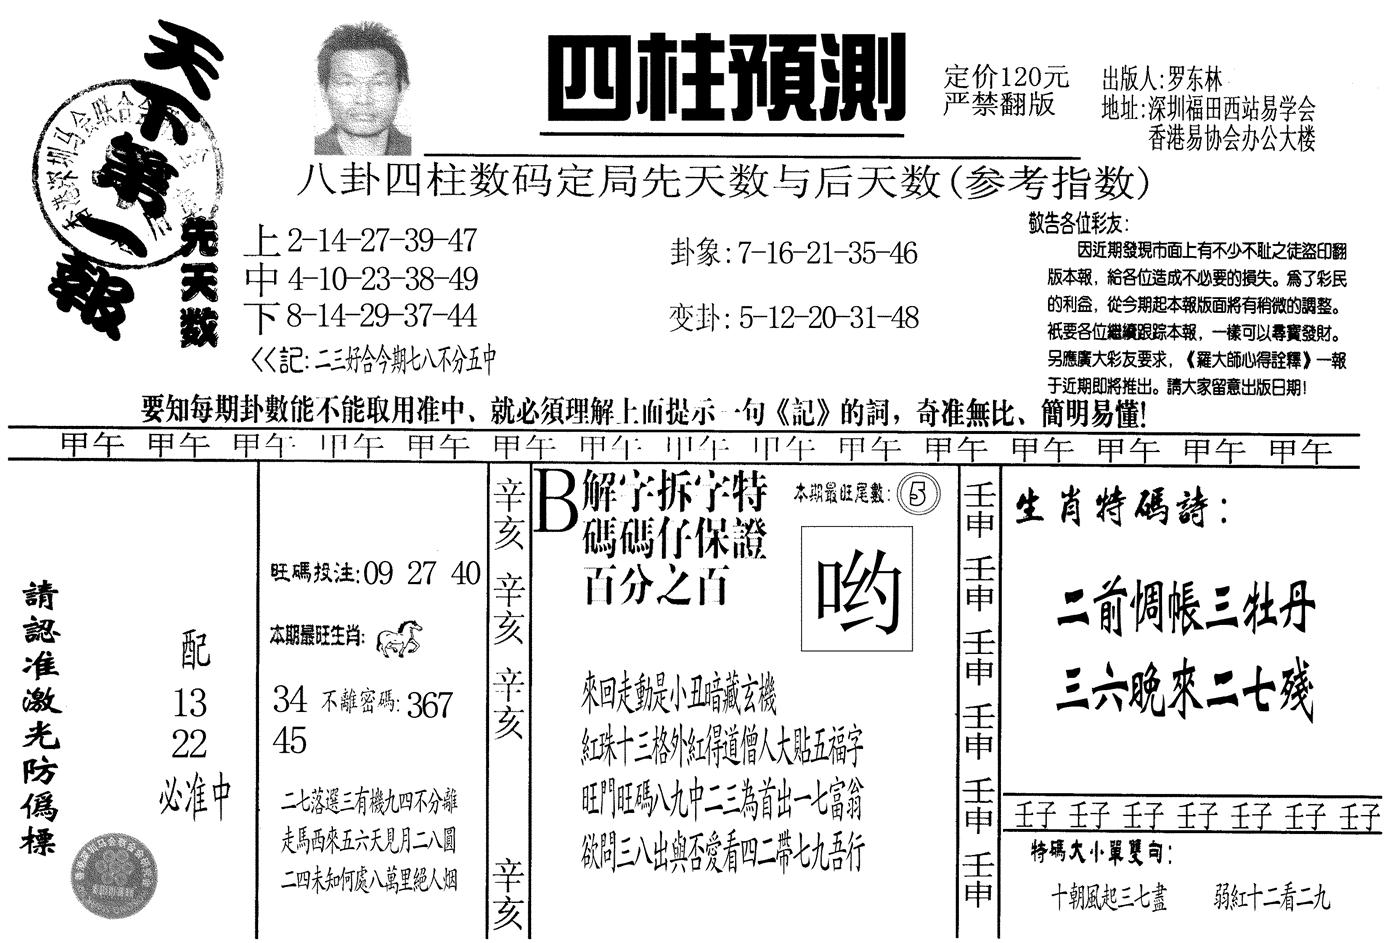 天下第一報
先天数
四柱預測
定价120元
严禁翻版
出版人:罗东林
地址:深圳福田西站易学会
香港易协会办公大楼
八卦四柱数码定局先天数与后天数(参考指数)
上 2-14-27-39-47
中 4-10-23-38-49
下 8-14-29-37-44
<<記: 二三好合今期七八不分五中
卦象: 7-16-21-35-46
变卦: 5-12-20-31-48
敬告各位彩友:
因近期發現市面上有不少不耻之徒盜印翻
版本報，給各位造成不必要的損失。爲了彩民
的利益，從今期起本報版面將有稍微的調整。
衹要各位繼續跟踪本報，一樣可以尋寶發財。
另應廣大彩友要求，《羅大師心得詮釋》一報
于近期即將推出。請大家留意出版日期!
要知每期卦數能不能取用准中、就必須理解上面提示一句《記》的詞，奇准無比、簡明易懂!
甲午 甲午 甲午 甲午 甲午 甲午 甲午 甲午 甲午 甲午 甲午 甲午 甲午 甲午 甲午
請認准激光防偽標
配
13
22
必准中
旺碼投注: 09 27 40
本期最旺生肖:
34 不離密碼: 367
45
二七落選三有機九四不分離
走馬西來五六天見月二八圓
二四未知何處八萬里絕人烟
辛亥
辛亥
辛亥
辛亥
B
解字拆字特
碼碼仔保證
百分之百
本期最旺尾數: 5
哟
來回走動是小丑暗藏玄機
紅珠十三格外紅得道僧人大貼五福字
旺門旺碼八九中二三為首出一七富翁
欲問三八出與否愛看四二帶七九吾行
壬申
壬申
壬申
壬申
壬申
壬申
生肖特碼詩:
二前惆帳三牡丹
三六晚來二七殘
壬子 壬子 壬子 壬子 壬子 壬子 壬子
特碼大小單雙句:
十朝風起三七盡 弱紅十二看二九